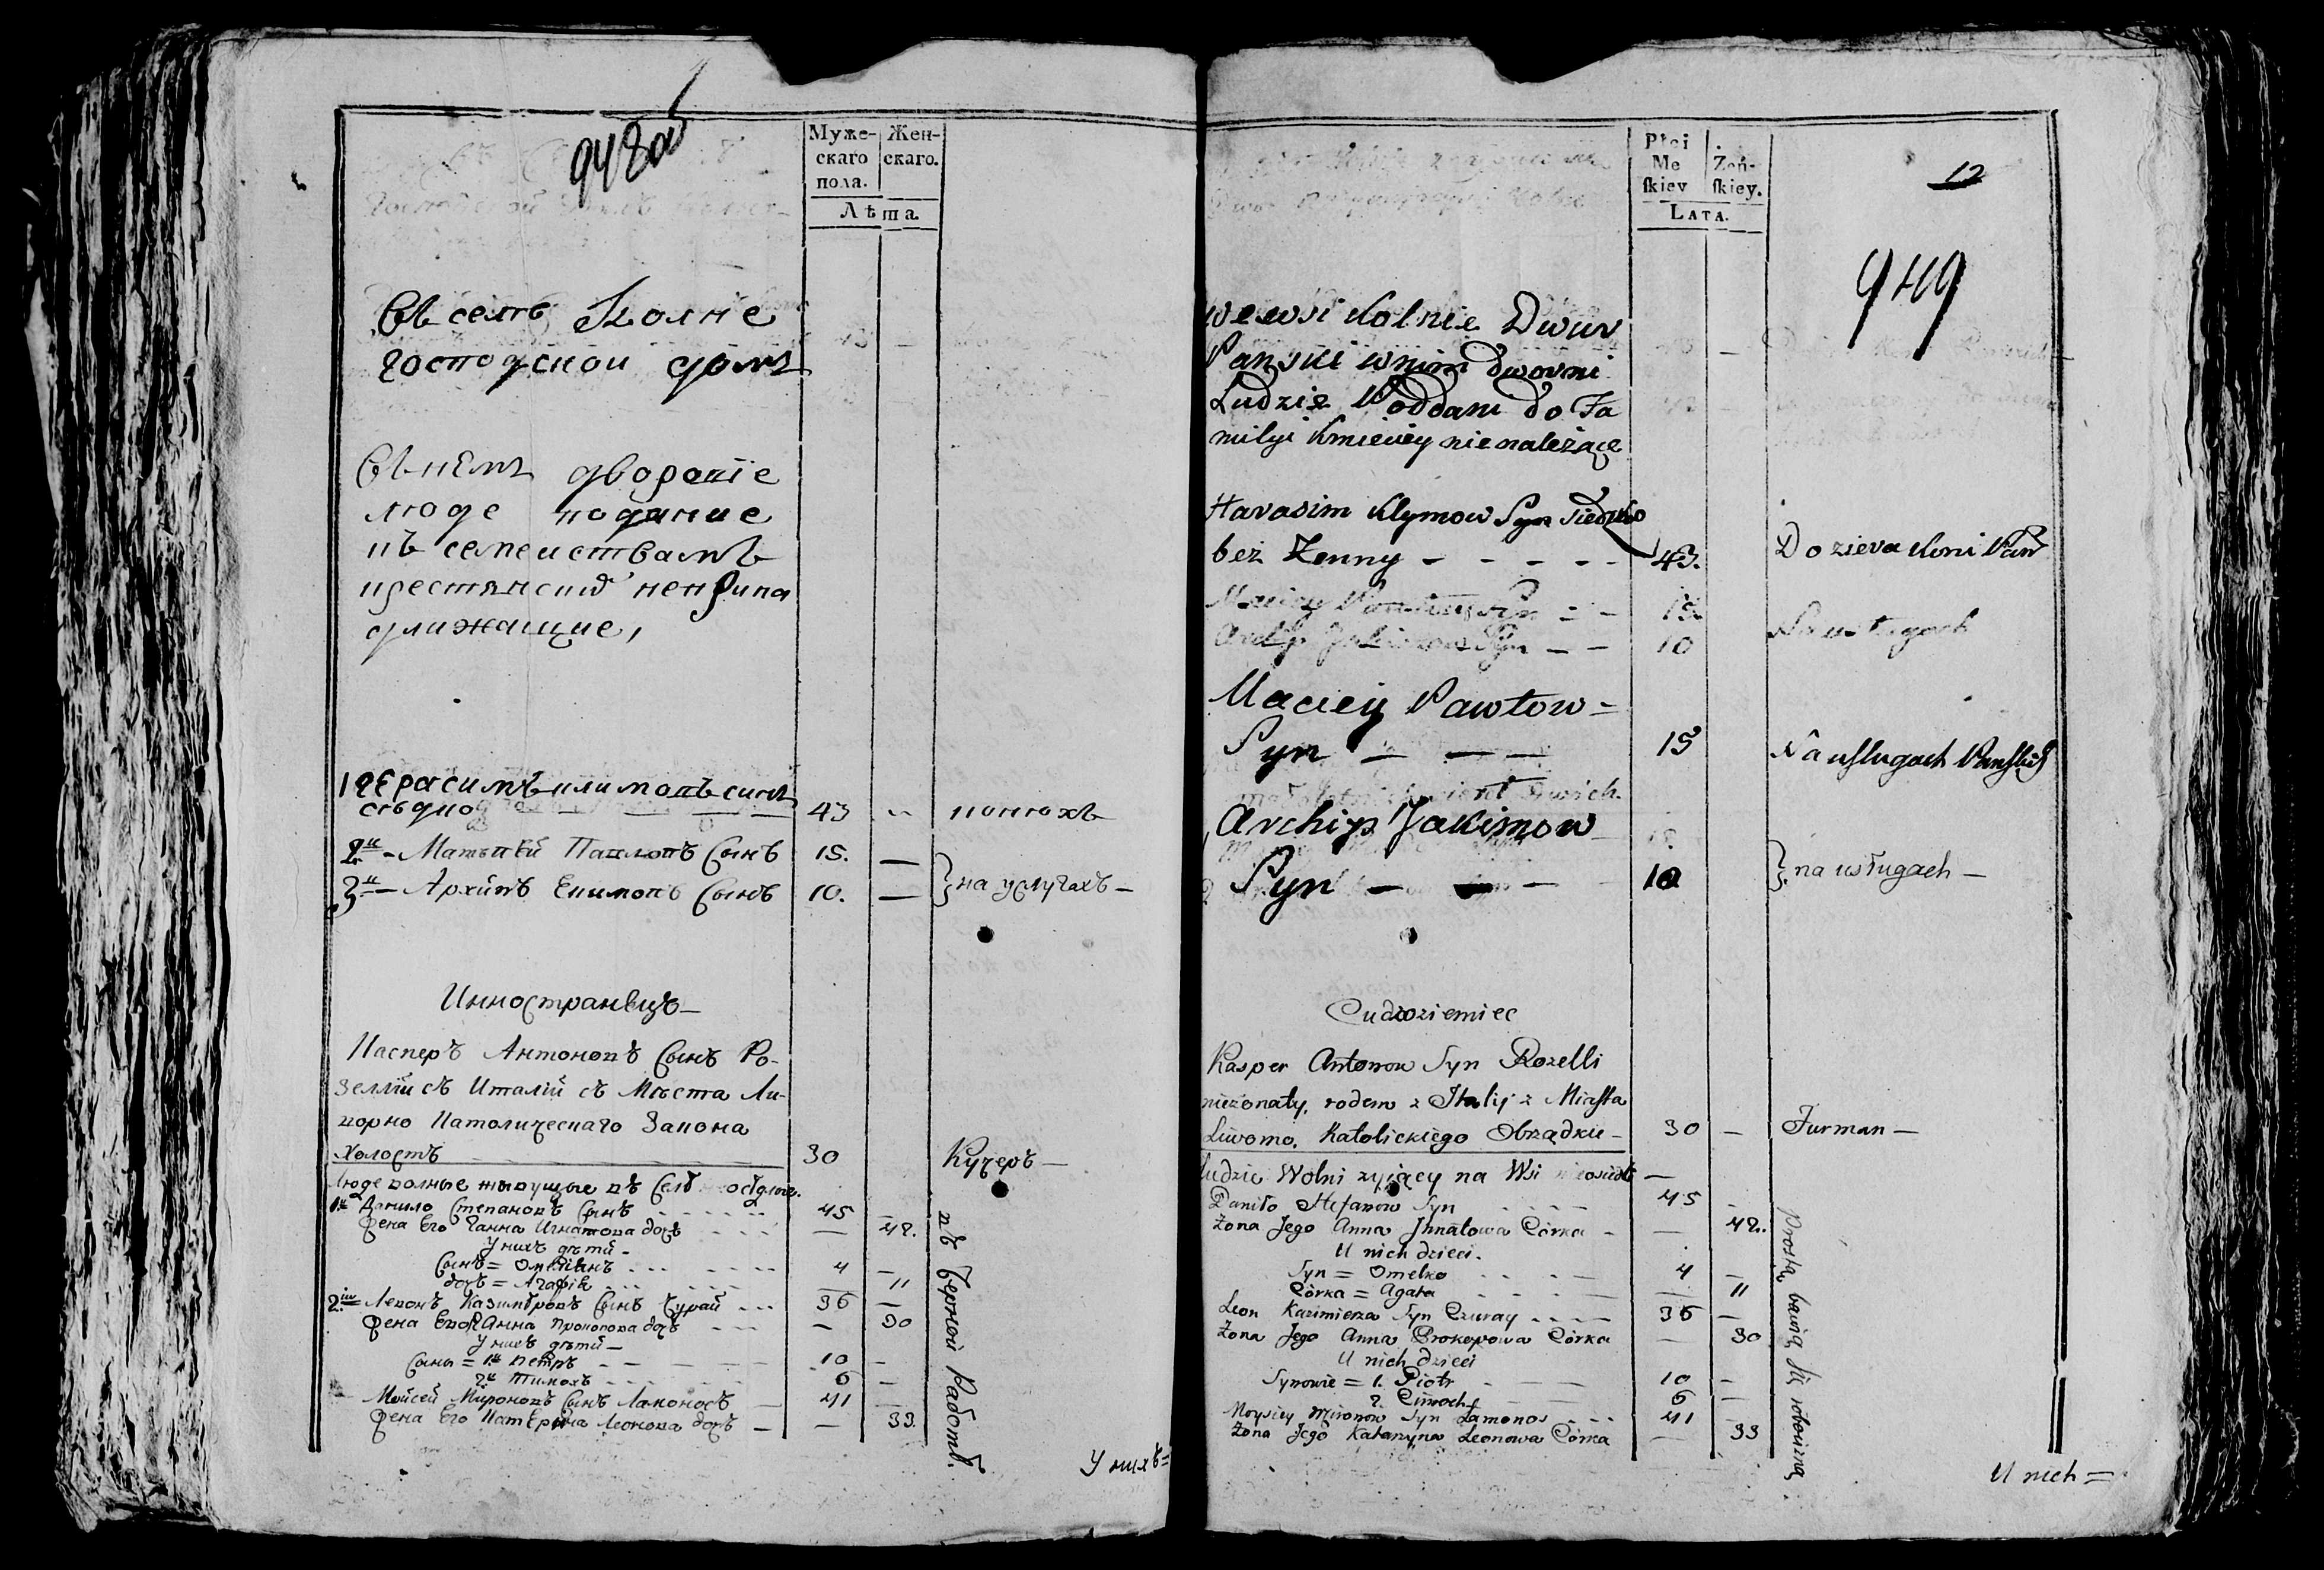 948об
Муже-
скаго
пола.
Жен-
скаго.
Лѣта.
Въ селѣ Колнѣ
господскои домъ
Въ немъ дворовіе
люде подание
къ семеиствамъ
крестянскимъ неприна
длижащие,
1 Герасимъ Климовъ синъ
43
2й – Матьвѣй Павловъ Сынъ 15. —
3й – Архипъ Екимовъ Сынъ 10. —
} на услугахъ –
Инностранецъ –
Касперъ Антоновъ Сынъ Ро-
зеллій съ Италій съ Мѣста Ли-
ворно Католическаго Закона
Холостъ 30 Кучеръ –
Люде волные живущые въ Селѣ
1й Данило Степановъ Сынъ 45 –
Жена Его Ганна Игнатова дочь — 42.
У нихъ дѣти –
Сынъ = Омелянъ 4 –
дочь = Агафія — 11
2й = Леконъ Казимѣровъ Сынъ Чурай 36 —
Жена Его Анна Прокопова дочь — 30
У нихъ дѣти –
Сыны = 1й Петръ 10 –
2й Тимохъ 6 –
Мойсей Мироновъ Сынъ Ламоносъ 41
Жена Его Катерина Леонова дочь — 33.
въ Черной Работѣ.
У нихъ =
Płci
Me
skiey
Żeń-
skiey.
Lata.
12
949
we wsi Kolnie Dwur
Panski w nim dworni
Ludzie Poddani do Fa
milyi kmieciey nienależące
Harasim Klymow Syn Siedzko
bez Zenny – – – – – 43.
Maciey Pawłow Syn – – 15
Archip Jakimow Syn – – 10
Na usługach
Maciey Pawłow =
Syn – — — 15 Na usługach Panskich
Archip Jakimow
Syn – — – 10 } na usługach –
Cudzoziemiec
Kasper Antonow Syn Rozelli
nieżonaty, rodem z Italij z Miasta
Liworno, Katolickiego Obrządku – 30 – Furman –
Ludzie Wolni zyjący na Wsi
Daniło Stefanow Syn 45 –
Zona Jego Anna Ihnatowa Córka – — 42.
U nich dzieci.
Syn = Omelko 4 –
Córka = Agata — 11
Leon Kazimierza Syn Czuray 36 –
Zona Jego Anna Prokopowa Córka — 30
U nich dzieci
Synowie = 1. Piotr 10 –
2. Cimoch 6 —
Moysiey Mironow Syn Łamonos 41 –
Zona Jego Katarzyna Leonowa Córka — 33
Prostą bawią się robocizną
U nich =